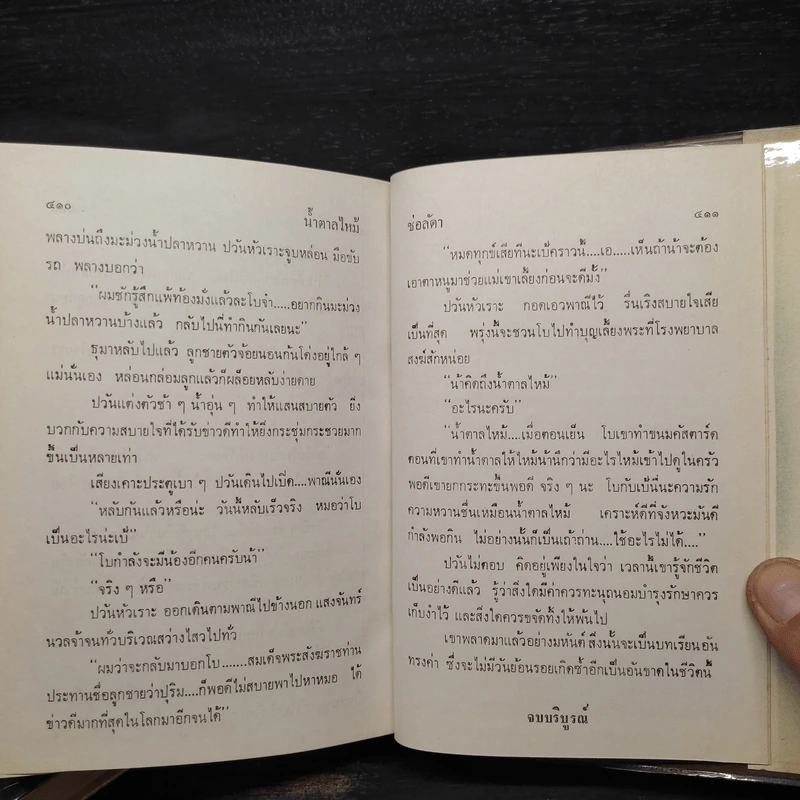 ๔๑๐
น้ำตาลไหม้
พลางบ่นถึงมะม่วงน้ำปลาหวาน ปวันหัวเราะจูบหล่อน มือขับ
รถ พลางบอกว่า
“ผมชักรู้สึกแพ้ท้องมั่งแล้วละโบจ๋า.....อยากกินมะม่วง
น้ำปลาหวานบ้างแล้ว กลับไปนี่ทำกินกันเลยนะ”
ธุมาหลับไปแล้ว ลูกชายตัวจ้อยนอนก้นโด่งอยู่ใกล้ ๆ
แม่นั่นเอง หล่อนกล่อมลูกแล้วก็ผล็อยหลับง่ายดาย
ปวันแต่งตัวช้า ๆ น้ำอุ่น ๆ ทำให้แสนสบายตัว ยิ่ง
บวกกับความสบายใจที่ได้รับข่าวดีทำให้ยิ่งกระชุ่มกระชวยมาก
ขึ้นเป็นหลายเท่า
เสียงเคาะประตูเบา ๆ ปวันเดินไปเปิด....พาณีนั่นเอง
“หลับกันแล้วหรือน่ะ วันนี้หลับเร็วจริง หมอว่าโบ
เป็นอะไรน่ะเป้”
“โบกำลังจะมีน้องอีกคนครับน้า”
“จริง ๆ หรือ”
ปวันหัวเราะ ออกเดินตามพาณีไปข้างนอก แสงจันทร์
นวลจ้าจนทั่วบริเวณสว่างไสวไปทั่ว
“ผมว่าจะกลับมาบอกโบ........สมเด็จพระสังฆราชท่าน
ประทานชื่อลูกชายว่าปุริม....ก็พอดีไม่สบายพาไปหาหมอ ได้
ข่าวดีมากที่สุดในโลกมาอีกจนได้”
ช่อลัดา
๔๑๑
“หมดทุกข์เสียทีนะเป้คราวนี้....เอ.....เห็นถ้าน้าจะต้อง
เอาตาหนูมาช่วยแม่เขาเลี้ยงก่อนจะดีมั้ง”
ปวันหัวเราะ กอดเอวพาณีไว้ รื่นเริงสบายใจเสีย
เป็นที่สุด พรุ่งนี้จะชวนโบไปทำบุญเลี้ยงพระที่โรงพยาบาล
สงฆ์สักหน่อย
“น้าคิดถึงน้ำตาลไหม้”
“อะไรนะครับ”
“น้ำตาลไหม้....เมื่อตอนเย็น โบเขาทำขนมคัสตาร์ด
ตอนที่เขาทำน้ำตาลให้ไหม้น้านึกว่ามีอะไรไหม้เข้าไปดูในครัว
พอดีเขายกกระทะขึ้นพอดี จริง ๆ นะ โบกับเป้นี่นะความรัก
ความหวานชื่นเหมือนน้ำตาลไหม้ เคราะห์ดีที่จังหวะมันดี
กำลังพอกิน ไม่อย่างนั้นก็เป็นเถ้าถ่าน....ใช้อะไรไม่ได้....”
ปวันไม่ตอบ คิดอยู่เพียงในใจว่า เวลานี้เขารู้จักชีวิต
เป็นอย่างดีแล้ว รู้ว่าสิ่งใดมีค่าควรทะนุถนอมบำรุงรักษาควร
เก็บงำไว้ และสิ่งใดควรขจัดทิ้งให้พ้นไป
เขาพลาดมาแล้วอย่างมหันต์ สิ่งนั้นจะเป็นบทเรียนอัน
ทรงค่า ซึ่งจะไม่มีวันย้อนรอยเกิดซ้ำอีกเป็นอันขาดในชีวิตนี้
จบบริบูรณ์